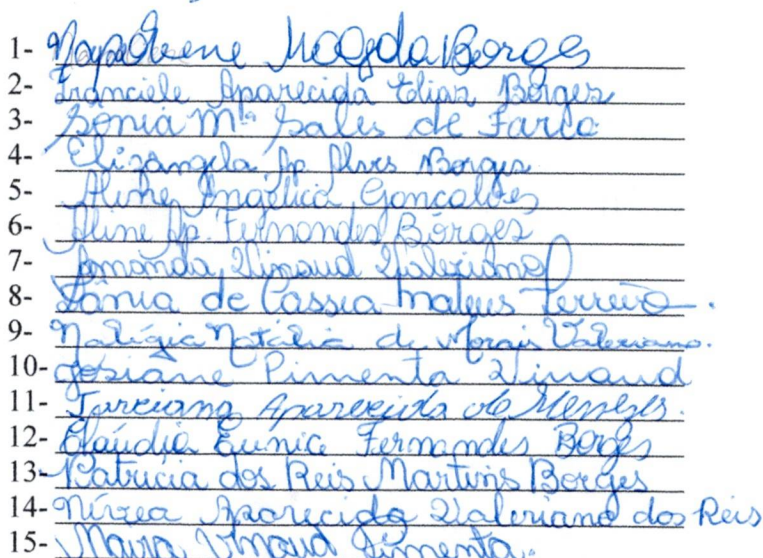 1- Magda Borges
2- Franciele Aparecida Elias Borges
3- Sonia Mª Sales de Faria
4- Elizângela Ap Alves Borges
5- Aline Angélica Gonçalves
6- Aline Ap. Fernandes Borges
7- Amanda Vinaud Valeriano
8- Vânia de Cassia Mateus Ferreira.
9- Natália de Morais Valeriano.
10- Josiane Pimenta Vinaud
11- Tarciana Aparecida de Menezes.
12- Claúdia Eunice Fernandes Borges
13- Patricia dos Reis Martins Borges
14- Nírcea Aparecida Valeriano dos Reis
15- Maira Vinaud Pimenta.